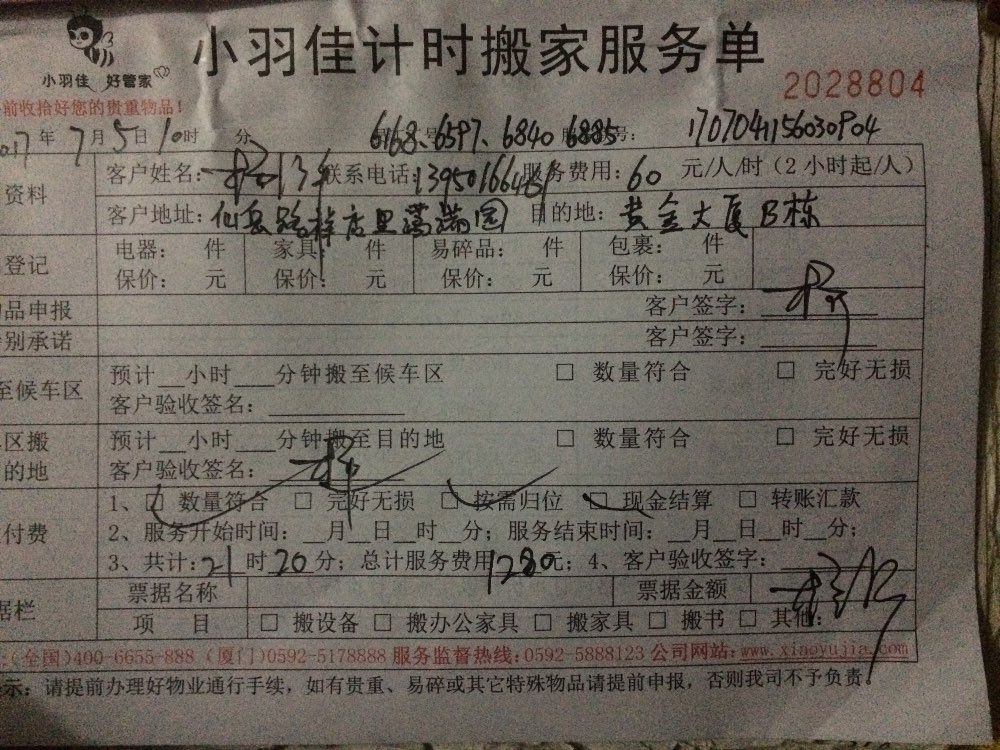 小羽佳 好管家
小羽佳计时搬家服务单
2028804
前收拾好您的贵重物品！
017年7月5日10时 分 6168、6597、6840 6885 号： 1707041156030904
资料 客户姓名： 联系电话： 服务费用：60 元/人/时（2小时起/人）
客户地址：仙岳路 园 目的地：黄金大厦B栋
登记 电器： 件 家具： 件 易碎品： 件 包裹： 件
保价： 元 保价： 元 保价： 元 保价： 元
品申报 客户签字：
别承诺 客户签字：
至候车区 预计__小时___分钟搬至候车区 □ 数量符合 □ 完好无损
客户验收签名：
区搬 预计__小时___分钟搬至目的地 □ 数量符合 □ 完好无损
的地 客户验收签名：
1、□ 数量符合 □ 完好无损 □ 按需归位 □ 现金结算 □ 转账汇款
付费 2、服务开始时间：__月__日__时__分；服务结束时间：__月__日__时__分；
3、共计：21时20分；总计服务费用1280元；4、客户验收签字：
据栏 票据名称 票据金额
项 目 □ 搬设备 □ 搬办公家具 □ 搬家具 □ 搬书 □ 其他：
：（全国）400-6655-888（厦门）0592-5178888 服务监督热线：0592-5888123 公司网站：www.xiaoyujia.com
示：请提前办理好物业通行手续，如有贵重、易碎或其它特殊物品请提前申报，否则我司不予负责